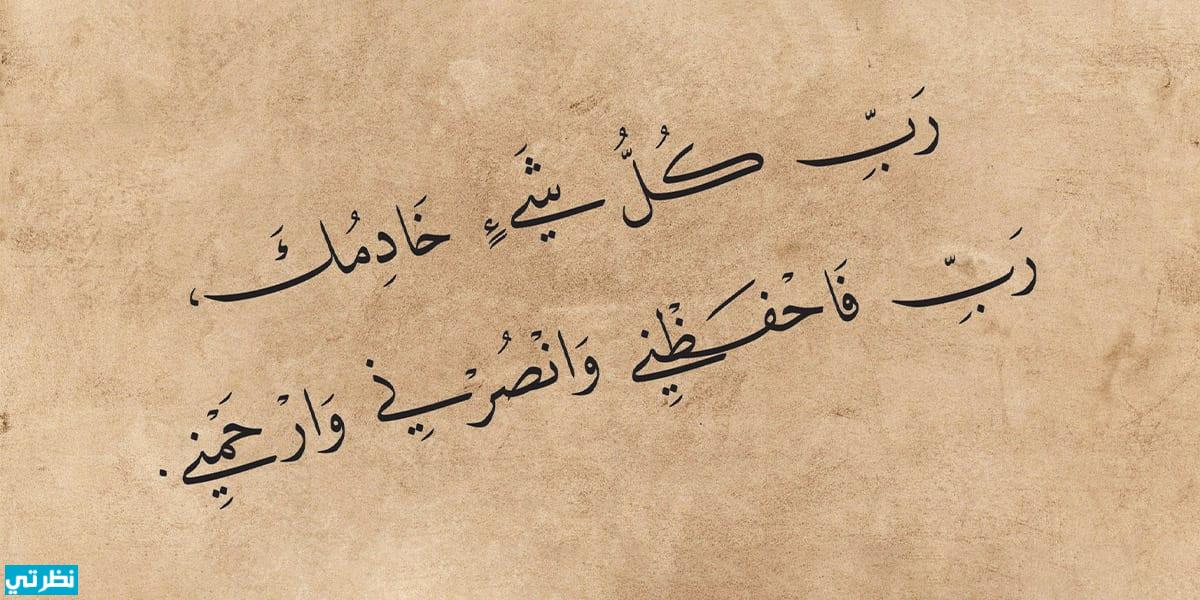 رَبِّ كُلُّ شَيْءٍ خَادِمُكَ،
رَبِّ فَاحْفَظْنِي وَانْصُرْنِي وَارْحَمْنِي.
نظرتي